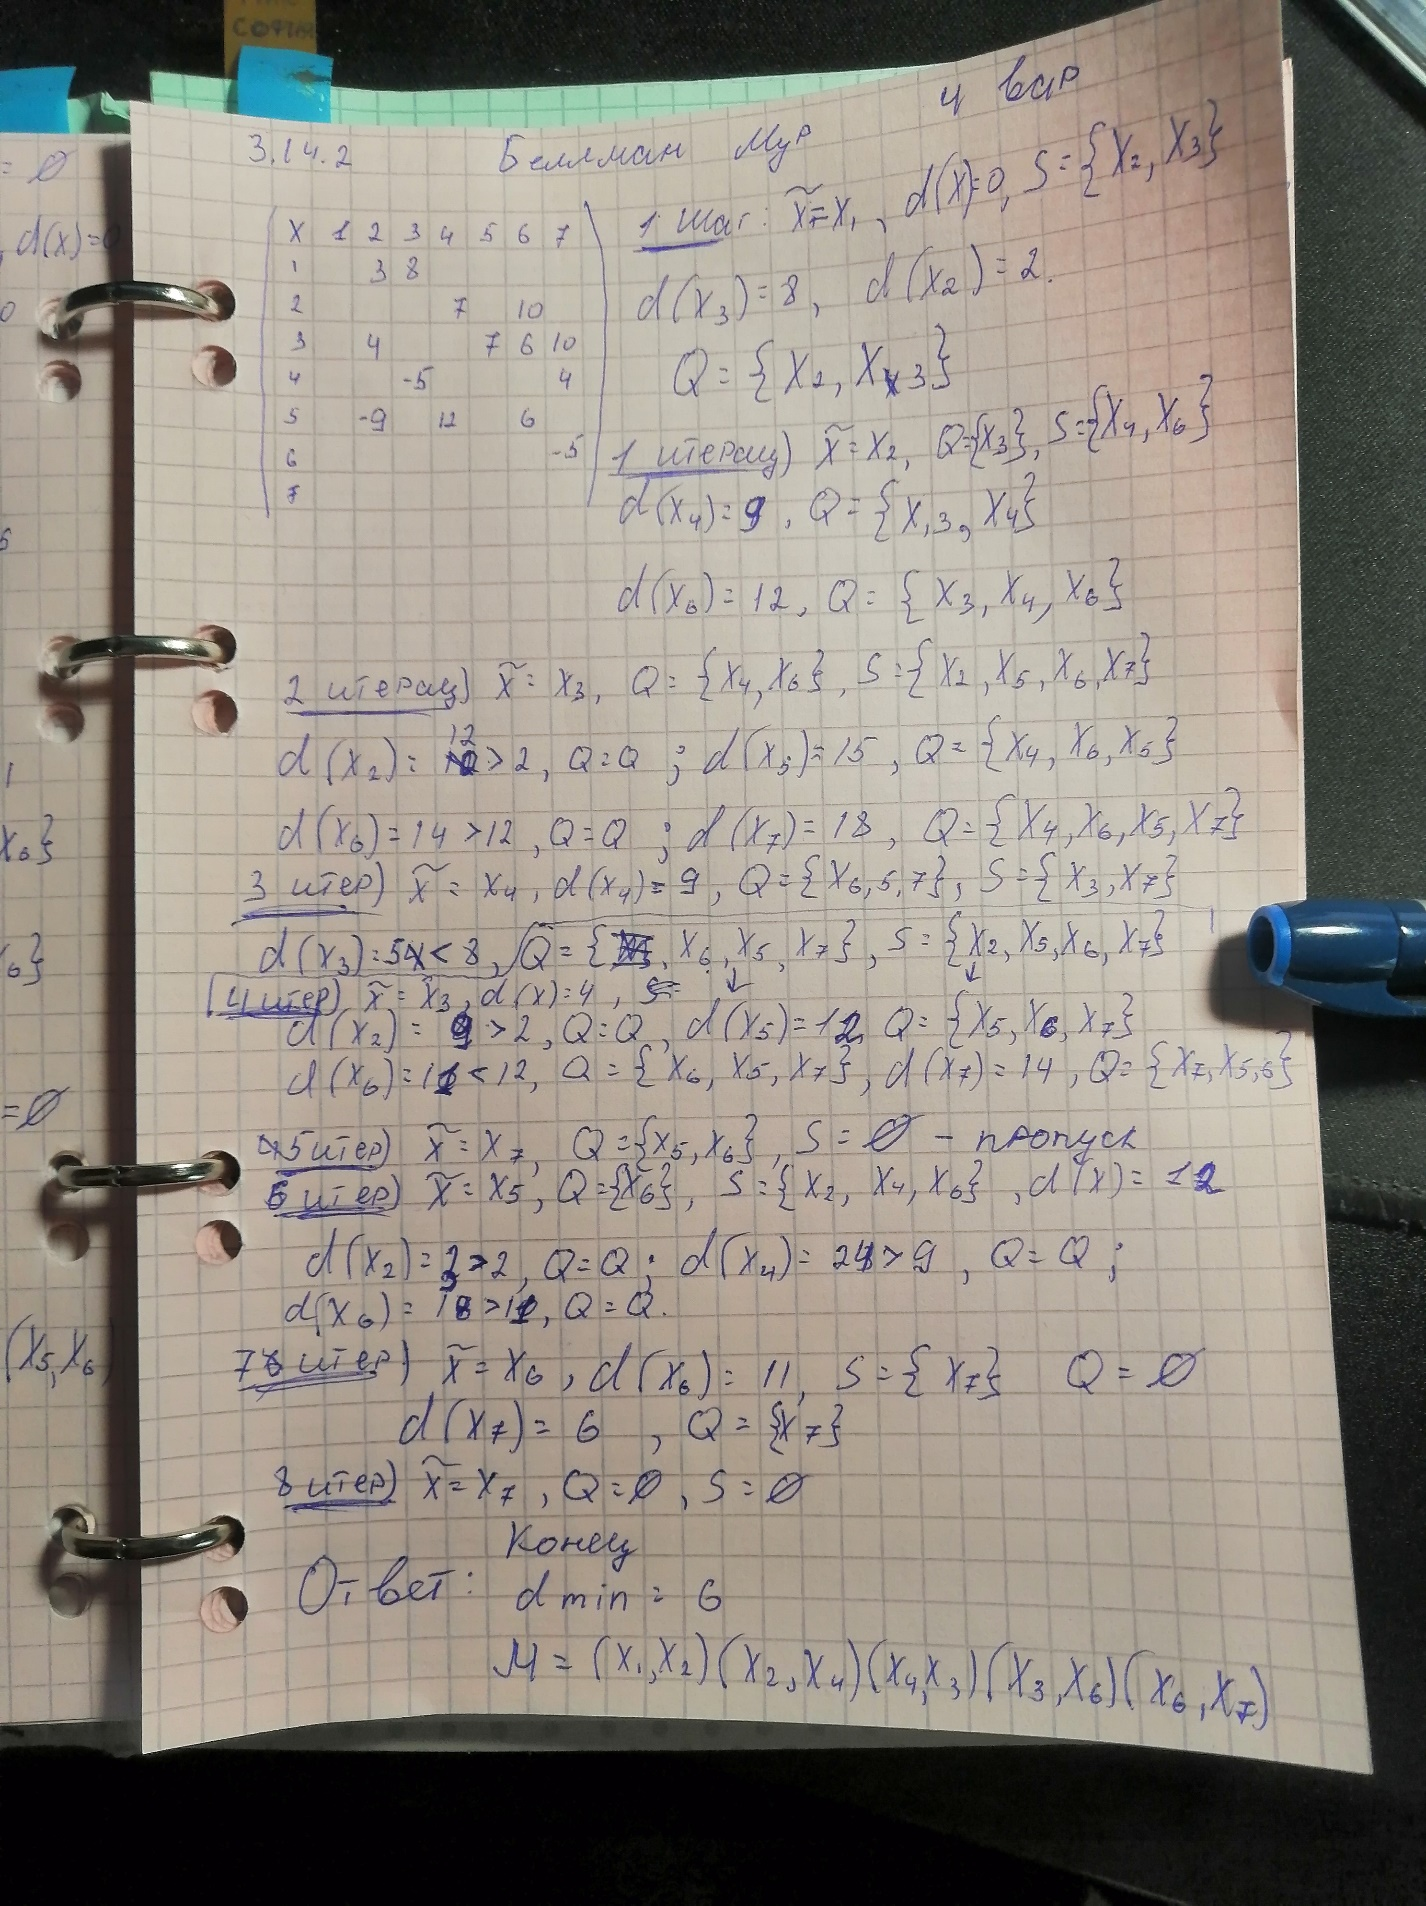 СОФИ
4 вар
= ∅
3.14.2 Беллман Мур
, d(x)=0
X 1 2 3 4 5 6 7
1 3 8
2 7 10
3 4 7 6 10
4 -5 4
5 -9 12 6
6 -5
7
1 шаг: x̃=x₁, d(x)=0, S={X₂, X₃}
d(x₃)=8, d(x₂)=2.
Q={X₂, X₃}
1 итерац) x̃=X₂, Q={X₃}, S={X₄, X₆}
d(x₄)=9, Q={X,₃, X₄}
d(x₆)=12, Q={X₃, X₄, X₆}
2 итерац) x̃=X₃, Q={X₄, X₆}, S={X₂, X₅, X₆, X₇}
d(x₂)=12>2, Q=Q; d(x₅)=15, Q={X₄, X₆, X₅}
d(x₆)=14>12, Q=Q; d(x₇)=18, Q={X₄, X₆, X₅, X₇}
3 итер) x̃=X₄, d(x₄)=9, Q={X₆,₅,₇}, S={X₃, X₇}
d(x₃)=5<8, Q={X₆, X₅, X₇}, S={X₂, X₅, X₆, X₇}
4 итер) x̃=X₃, d(x)=4,
d(x₂)=9>2, Q=Q, d(x₅)=12, Q={X₅, X₆, X₇}
d(x₆)=11<12, Q={X₆, X₅, X₇}, d(x₇)=14, Q={X₇, X₅,₆}
5 итер) x̃=X₇, Q={X₅, X₆}, S=∅ - пропуск
6 итер) x̃=X₅, Q={X₆}, S={X₂, X₄, X₆}, d(x)=12
d(x₂)=3>2, Q=Q; d(x₄)=24>9, Q=Q;
d(x₆)=18>11, Q=Q.
7 итер) x̃=X₆, d(x₆)=11, S={X₇} Q=∅
d(x₇)=6, Q={X₇}
8 итер) x̃=X₇, Q=∅, S=∅
Конец
Ответ: d min = 6
M=(X₁,X₂)(X₂,X₄)(X₄,X₃)(X₃,X₆)(X₆,X₇)
X₆}
=∅
(X₅,X₆)